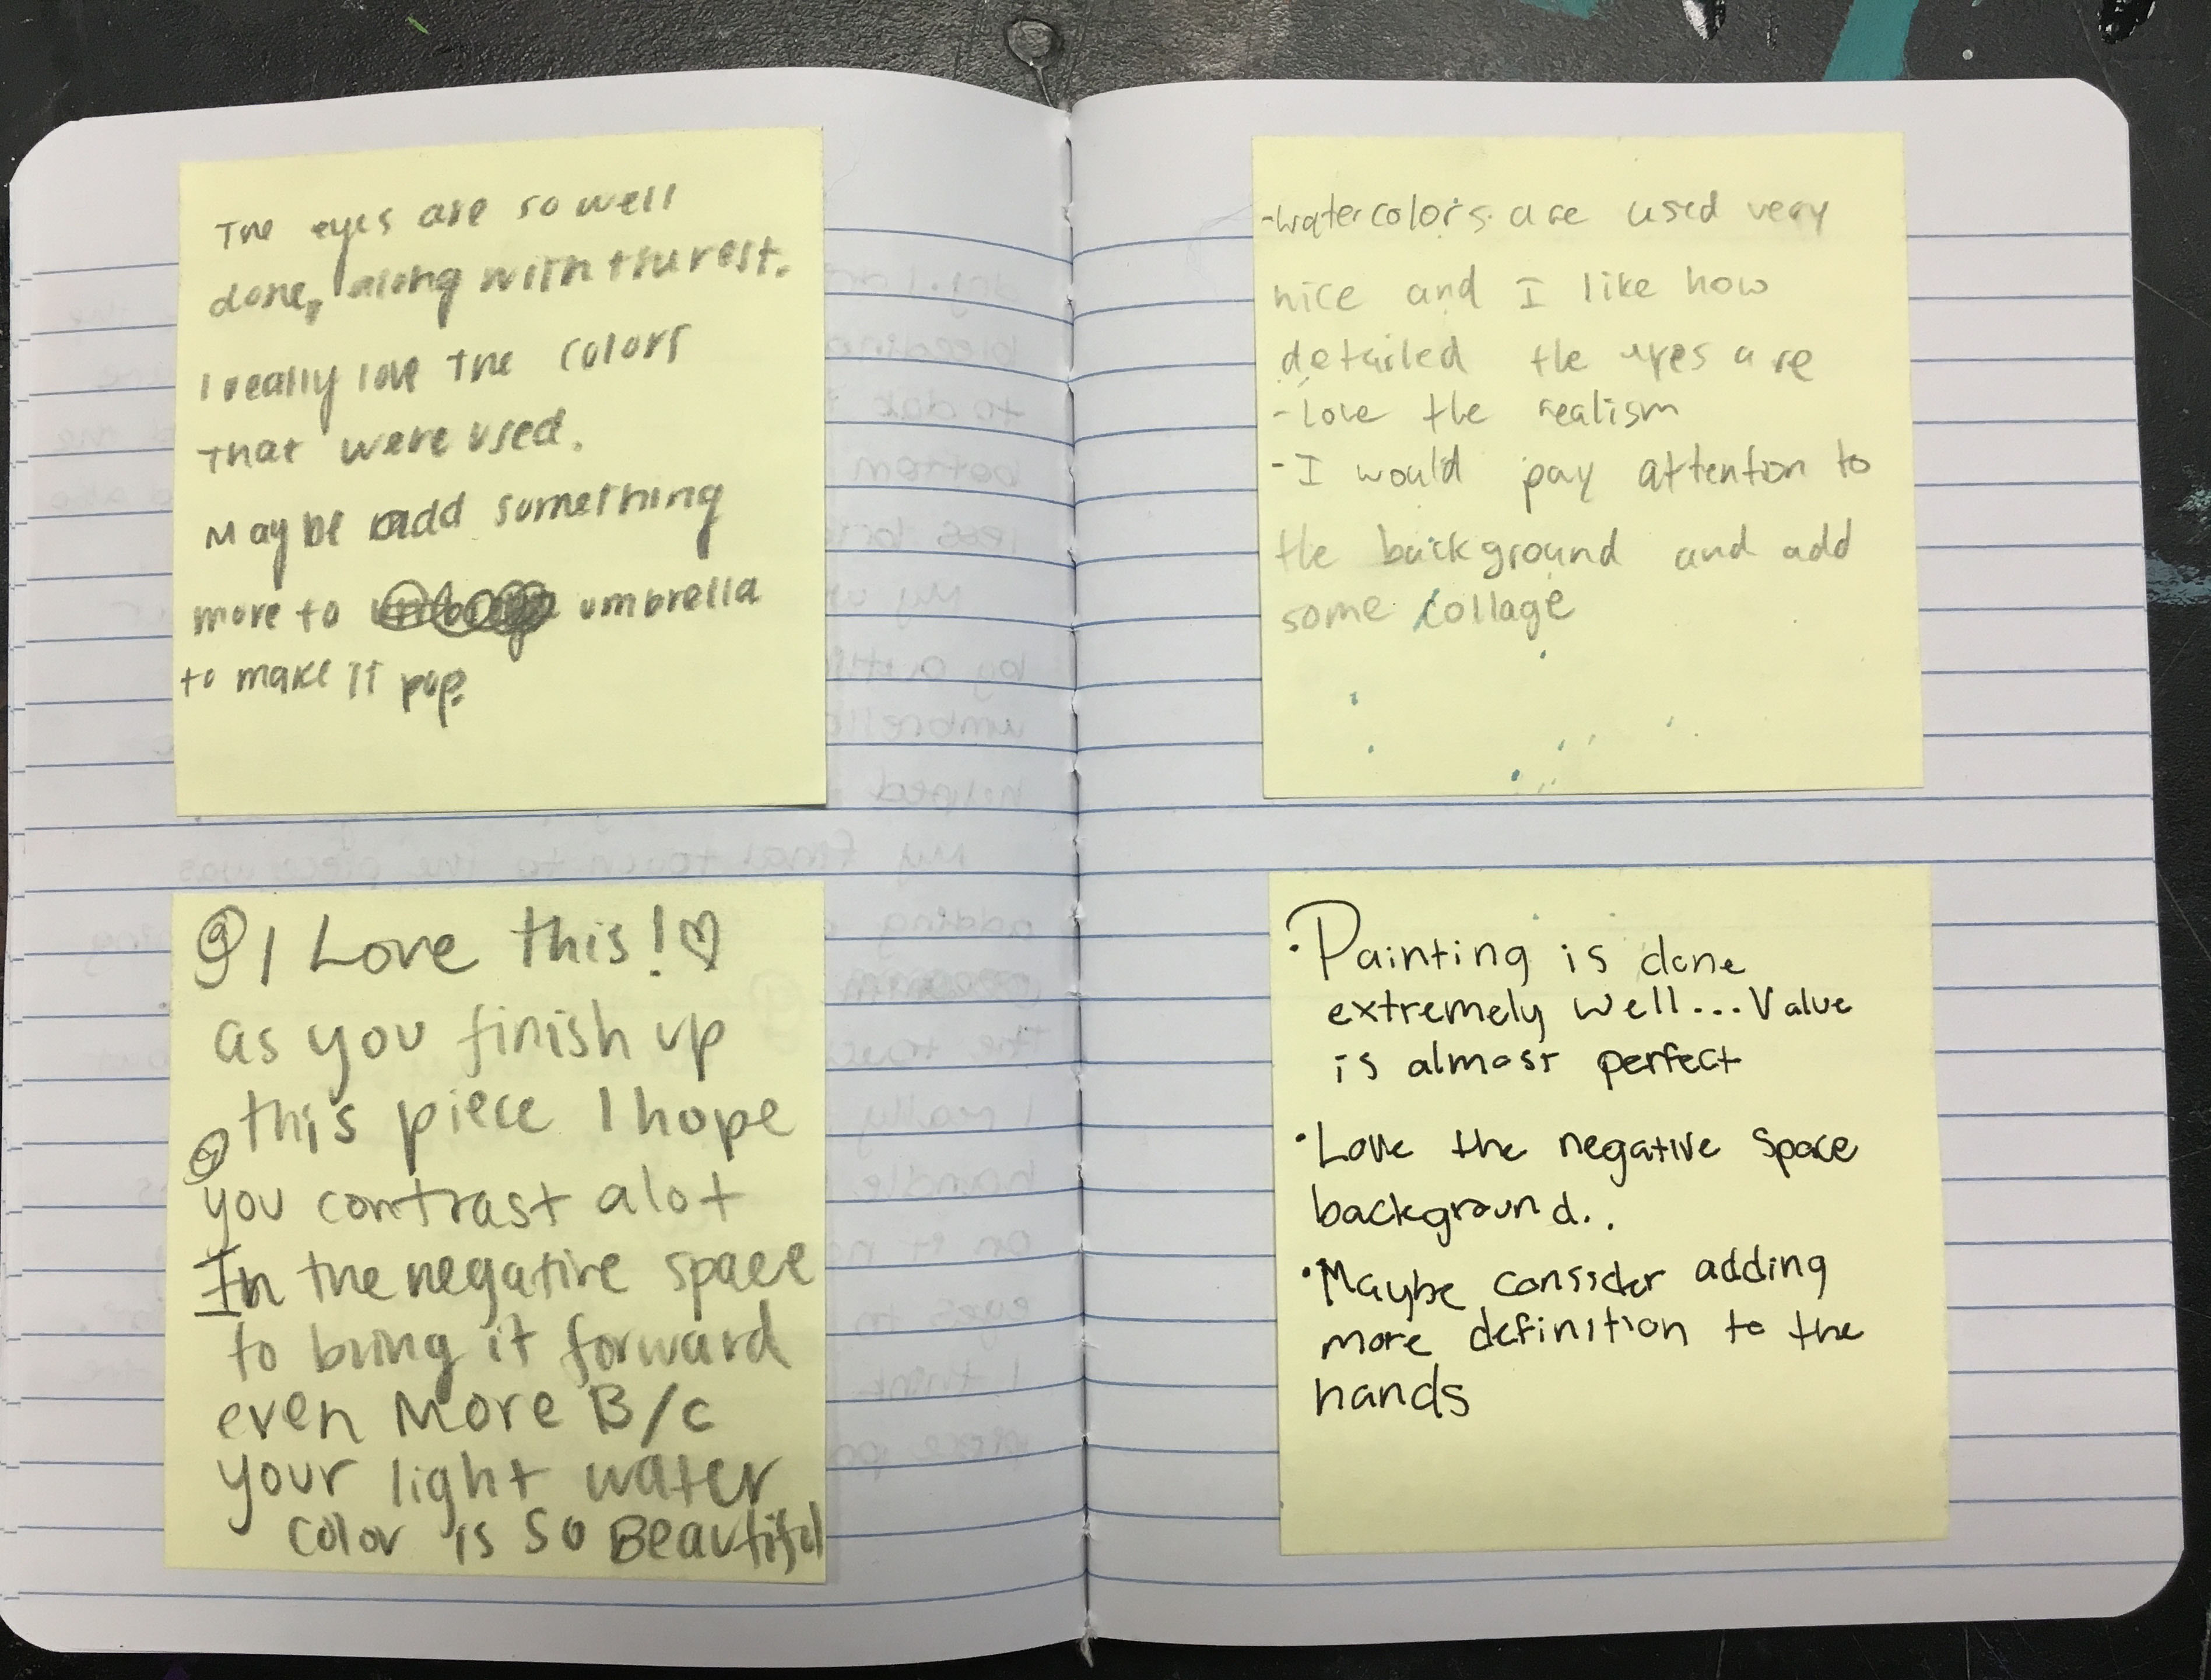 The eyes are so well
done, along with the rest.
I really love the colors
that were used.
Maybe add something
more to umbrella
to make it pop.
I Love this! ♡
as you finish up
this piece I hope
you contrast alot
In the negative space
to bring it forward
even More B/c
your light water
color is so Beautiful
-watercolors are used very
nice and I like how
detailed the eyes are
-Love the realism
-I would pay attention to
the background and add
some collage
•Painting is done
extremely well...Value
is almost perfect
•Love the negative space
background..
•Maybe consider adding
more definition to the
hands